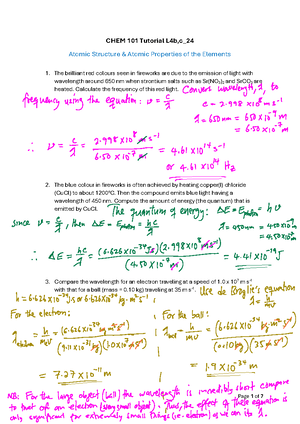 CHEM 101 Tutorial L4b,c_24
Atomic Structure & Atomic Properties of the Elements
1. The brilliant red colours seen in fireworks are due to the emission of light with
wavelength around 650 nm when strontium salts such as Sr(NO₃)₂ and SrCO₃ are
heated. Calculate the frequency of this red light. Convert wavelength, λ, to
frequency using the equation: ν = c/λ
c = 2.998 × 10⁸ m s⁻¹
λ = 650 nm = 650 × 10⁻⁹ m
= 6.50 × 10⁻⁷ m
∴ ν = c/λ = 2.998 × 10⁸ m s⁻¹ / 6.50 × 10⁻⁷ m = 4.61 × 10¹⁴ s⁻¹
or 4.61 × 10¹⁴ Hz
2. The blue colour in fireworks is often achieved by heating copper(I) chloride
(CuCl) to about 1200°C. Then the compound emits blue light having a
wavelength of 450 nm. Compute the amount of energy (the quantum) that is
emitted by CuCl. The quantum of energy: ΔE = E photon = hν
since ν = c/λ, then ΔE = E photon = hc/λ
λ = 450 nm = 450 × 10⁻⁹ m
= 4.50 × 10⁻⁷ m
∴ ΔE = hc/λ = (6.626 × 10⁻³⁴ Js)(2.998 × 10⁸ m s⁻¹) / (4.50 × 10⁻⁷ m) = 4.41 × 10⁻¹⁹ J
3. Compare the wavelength for an electron travelling at a speed of 1.0 x 10⁷ m s⁻¹
with that for a ball (mass = 0.10 kg) traveling at 35 m s⁻¹. Use de Broglie's equation
h = 6.626 × 10⁻³⁴ Js or 6.626 × 10⁻³⁴ kg m² s⁻¹ λ = h/mv
For the electron: For the ball:
λ electron = h/mv = (6.626 × 10⁻³⁴ kg m² s⁻¹) / (9.11 × 10⁻³¹ kg)(1.0 × 10⁷ m s⁻¹)
= 7.27 × 10⁻¹¹ m
λ ball = h/mv = (6.626 × 10⁻³⁴ kg m² s⁻¹) / (0.10 kg)(35 m s⁻¹)
= 1.9 × 10⁻³⁴ m
NB: For the large object (ball) the wavelength is incredibly short compare
Page 1 of 7
to that of an electron (very small object). Thus, the effect of these equation is
only significant for extremely small things (i.e. electron) as we can it.